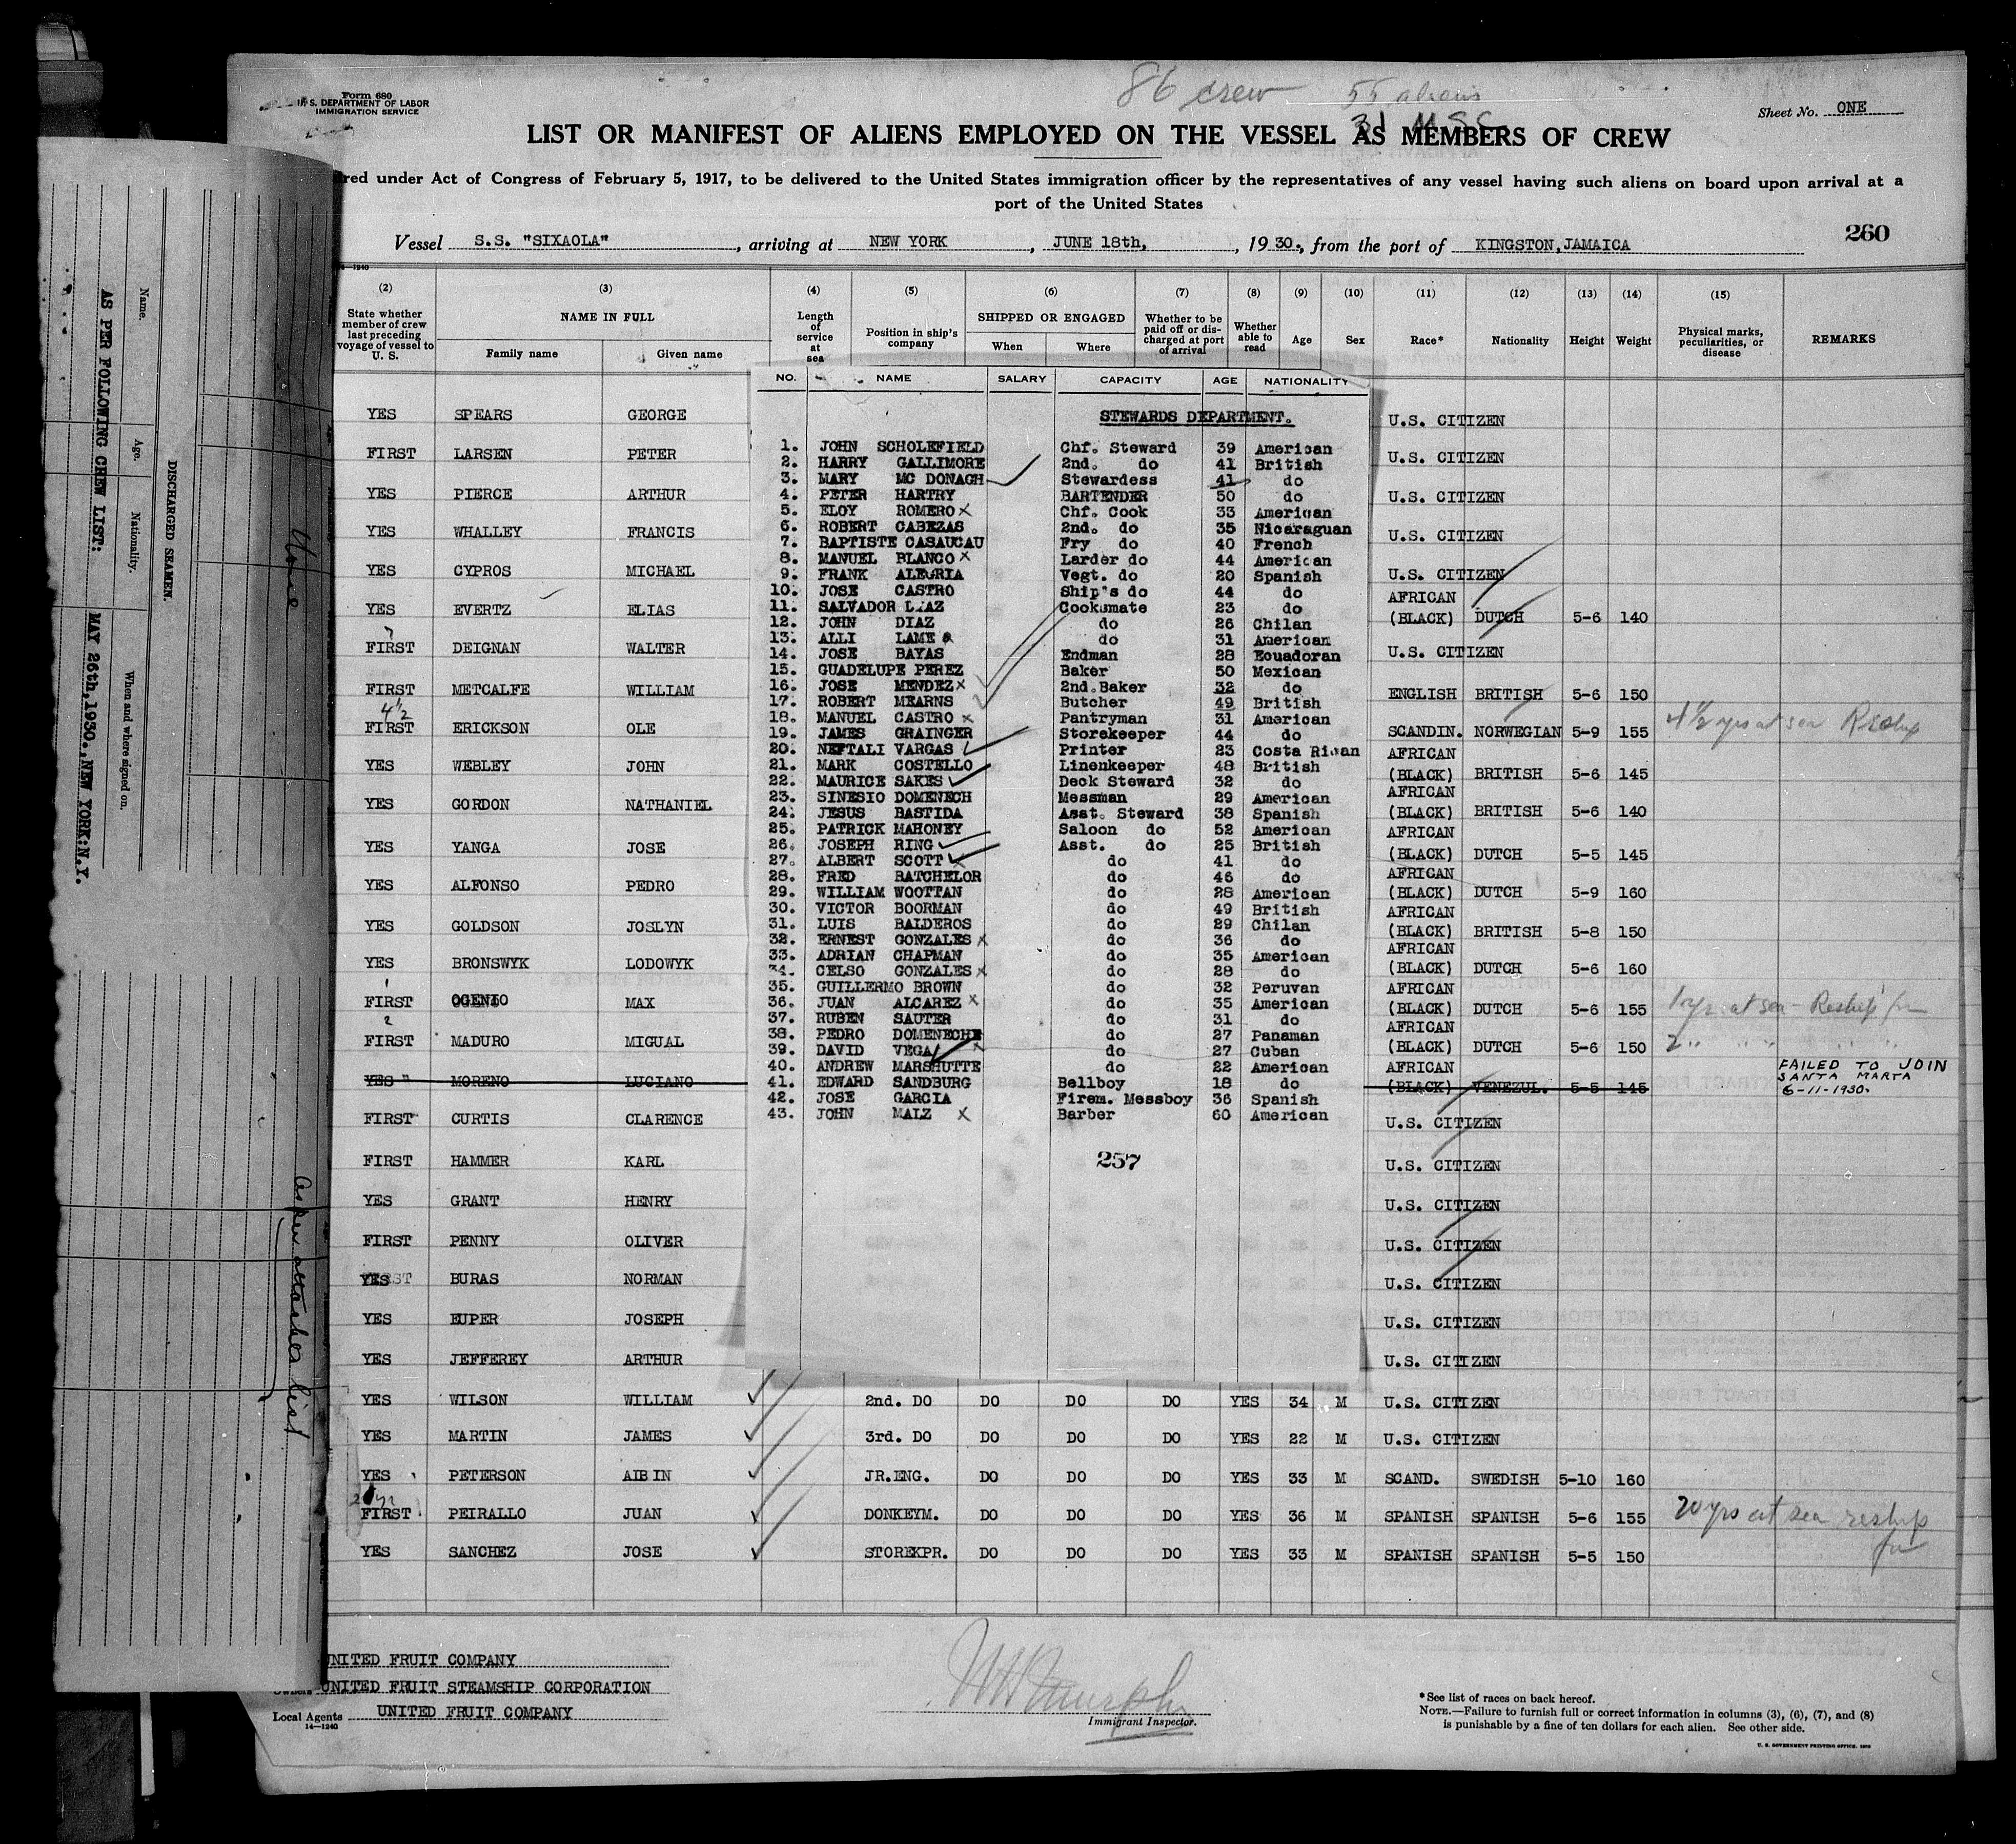 86 crew 55 aliens
31 U S C
Form 680
U. S. DEPARTMENT OF LABOR
IMMIGRATION SERVICE
Sheet No. ONE
LIST OR MANIFEST OF ALIENS EMPLOYED ON THE VESSEL AS MEMBERS OF CREW
red under Act of Congress of February 5, 1917, to be delivered to the United States immigration officer by the representatives of any vessel having such aliens on board upon arrival at a
port of the United States
Vessel S.S. "SIXAOLA", arriving at NEW YORK, JUNE 18th, 1930., from the port of KINGSTON, JAMAICA
260
14—1240
(2) (3) (4) (5) (6) (7) (8) (9) (10) (11) (12) (13) (14) (15)
State whether member of crew last preceding voyage of vessel to U. S. NAME IN FULL Family name Given name Length of service at sea Position in ship's company SHIPPED OR ENGAGED When Where Whether to be paid off or discharged at port of arrival Whether able to read Age Sex Race* Nationality Height Weight Physical marks, peculiarities, or disease REMARKS
YES SPEARS GEORGE U.S. CITIZEN
FIRST LARSEN PETER U.S. CITIZEN
YES PIERCE ARTHUR U.S. CITIZEN
YES WHALLEY FRANCIS U.S. CITIZEN
YES CYPROS MICHAEL U.S. CITIZEN
YES EVERTZ ELIAS AFRICAN (BLACK) DUTCH 5-6 140
FIRST DEIGNAN WALTER U.S. CITIZEN
FIRST METCALFE WILLIAM ENGLISH BRITISH 5-6 150
4½
FIRST ERICKSON OLE SCANDIN. NORWEGIAN 5-9 155 4½ yrs at sea Reship
YES WEBLEY JOHN AFRICAN (BLACK) BRITISH 5-6 145
YES GORDON NATHANIEL AFRICAN (BLACK) BRITISH 5-6 140
YES YANGA JOSE AFRICAN (BLACK) DUTCH 5-5 145
YES ALFONSO PEDRO AFRICAN (BLACK) DUTCH 5-9 160
YES GOLDSON JOSLYN AFRICAN (BLACK) BRITISH 5-8 150
YES BRONSWYK LODOWYK AFRICAN (BLACK) DUTCH 5-6 160
FIRST OGENIO MAX AFRICAN (BLACK) DUTCH 5-6 155 1 yr. at sea - Reship
2
FIRST MADURO MIGUAL AFRICAN (BLACK) DUTCH 5-6 150 2 " " " "
YES " MORENO LUCIANO AFRICAN (BLACK) VENEZUL. 5-5 145 FAILED TO JOIN SANTA MARTA 6-11-1930.
FIRST CURTIS CLARENCE U.S. CITIZEN
FIRST HAMMER KARL U.S. CITIZEN
YES GRANT HENRY U.S. CITIZEN
FIRST PENNY OLIVER U.S. CITIZEN
YES BURAS NORMAN U.S. CITIZEN
YES EUPER JOSEPH U.S. CITIZEN
YES JEFFEREY ARTHUR U.S. CITIZEN
YES WILSON WILLIAM 2nd. DO DO DO DO YES 34 M U.S. CITIZEN
YES MARTIN JAMES 3rd. DO DO DO DO YES 22 M U.S. CITIZEN
YES PETERSON AIBIN JR.ENG. DO DO DO YES 33 M SCAND. SWEDISH 5-10 160
FIRST PEIRALLO JUAN DONKEYM. DO DO DO YES 36 M SPANISH SPANISH 5-6 155 20 yrs at sea reship
YES SANCHEZ JOSE STOREKPR. DO DO DO YES 33 M SPANISH SPANISH 5-5 150
NO. NAME SALARY CAPACITY AGE NATIONALITY
STEWARDS DEPARTMENT.
1. JOHN SCHOLEFIELD Chf. Steward 39 American
2. HARRY GALLIMORE 2nd. do 41 British
3. MARY MC DONAGH Stewardess 41 do
4. PETER HARTRY BARTENDER 50 do
5. ELOY ROMERO x Chf. Cook 33 American
6. ROBERT CABEZAS 2nd. do 35 Nicaraguan
7. BAPTISTE CASAUCAU Fry do 40 French
8. MANUEL BLANCO x Larder do 44 American
9. FRANK ALEGRIA Vegt. do 20 Spanish
10. JOSE CASTRO Ship's do 44 do
11. SALVADOR DIAZ Cooksmate 23 do
12. JOHN DIAZ do 26 Chilan
13. ALLI LAME do 31 American
14. JOSE BAYAS Endman 28 Ecuadoran
15. GUADELUPE PEREZ Baker 50 Mexican
16. JOSE MENDEZ x 2nd.Baker 32 do
17. ROBERT MEARNS Butcher 49 British
18. MANUEL CASTRO x Pantryman 31 American
19. JAMES GRAINGER Storekeeper 44 do
20. NEFTALI VARGAS Printer 23 Costa Rican
21. MARK COSTELLO Linenkeeper 48 British
22. MAURICE SAKES Deck Steward 32 do
23. SINESIO DOMENECH Messman 29 American
24. JESUS BASTIDA Asst. Steward 38 Spanish
25. PATRICK MAHONEY Saloon do 52 American
26. JOSEPH RING Asst. do 25 British
27. ALBERT SCOTT x do 41 do
28. FRED BATCHELOR do 46 do
29. WILLIAM WOOTTAN do 28 American
30. VICTOR BOORMAN do 49 British
31. LUIS BALDEROS do 29 Chilan
32. ERNEST GONZALES x do 36 do
33. ADRIAN CHAPMAN do 35 American
34. CELSO GONZALES x do 28 do
35. GUILLERMO BROWN do 32 Peruvan
36. JUAN ALCAREZ x do 35 American
37. RUBEN SAUTER do 31 do
38. PEDRO DOMENECHE do 27 Panaman
39. DAVID VEGA x do 27 Cuban
40. ANDREW MARSHUTTE do 22 American
41. EDWARD SANDBURG Bellboy 18 do
42. JOSE GARCIA Firem. Messboy 36 Spanish
43. JOHN MALZ x Barber 60 American
257
UNITED FRUIT COMPANY
Owners UNITED FRUIT STEAMSHIP CORPORATION
Local Agents UNITED FRUIT COMPANY
14—1240
Immigrant Inspector.
*See list of races on back hereof.
NOTE.—Failure to furnish full or correct information in columns (3), (6), (7), and (8)
is punishable by a fine of ten dollars for each alien. See other side.
U. S. GOVERNMENT PRINTING OFFICE
DISCHARGED SEAMEN.
Name. Age. Nationality. When and where signed on.
AS PER FOLLOWING CREW LIST: MAY 26th,1930., NEW YORK:N.Y.
None
As per attached list